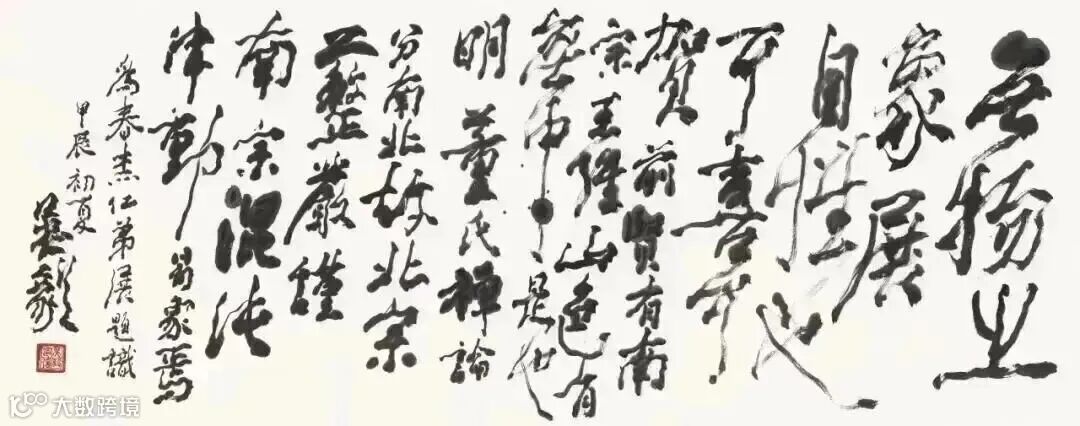 无物之
象展
自性也
可喜可
賀前賢有南
宗王維山色有
無中是也
明董氏禪論
分南北故北宗
工整嚴謹
南宗混沌
律動 象焉
為春杰仁弟展題識
甲辰初夏
大数跨境